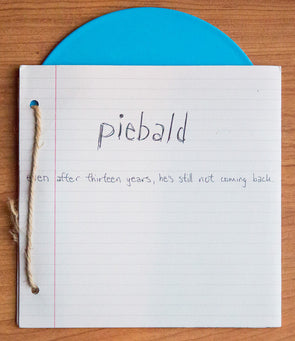 piebald
even after thirteen years, he's still not coming back.